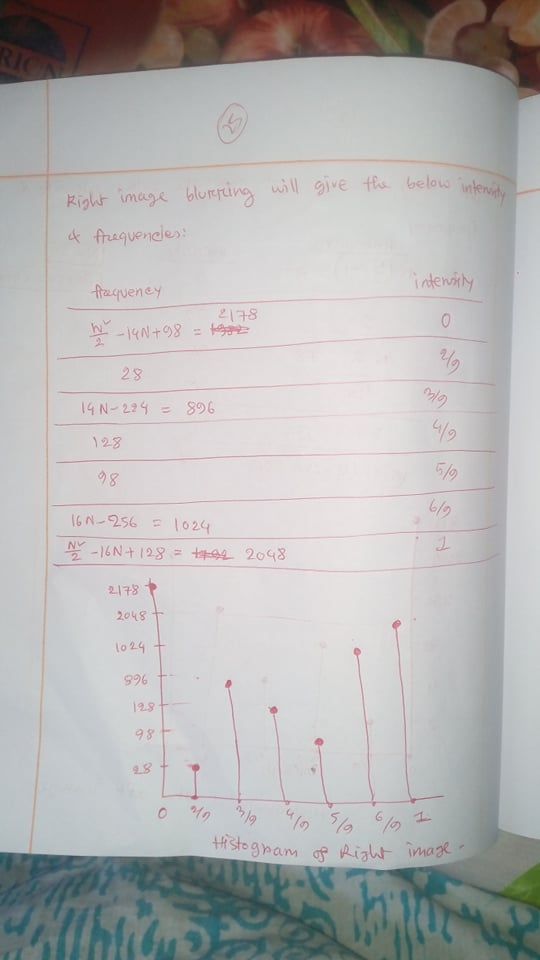 RION
25
Right image blurring will give the below intensity
& frequencies:
frequency intensity
N²/2 - 14N + 98 = 2178 0
28 2/9
14N - 224 = 896 3/9
128 4/9
98 5/9
16N - 256 = 1024 6/9
N²/2 - 16N + 128 = 2048 1
2178
2048
1024
896
128
98
28
0 2/9 3/9 4/9 5/9 6/9 1
Histogram of Right image.